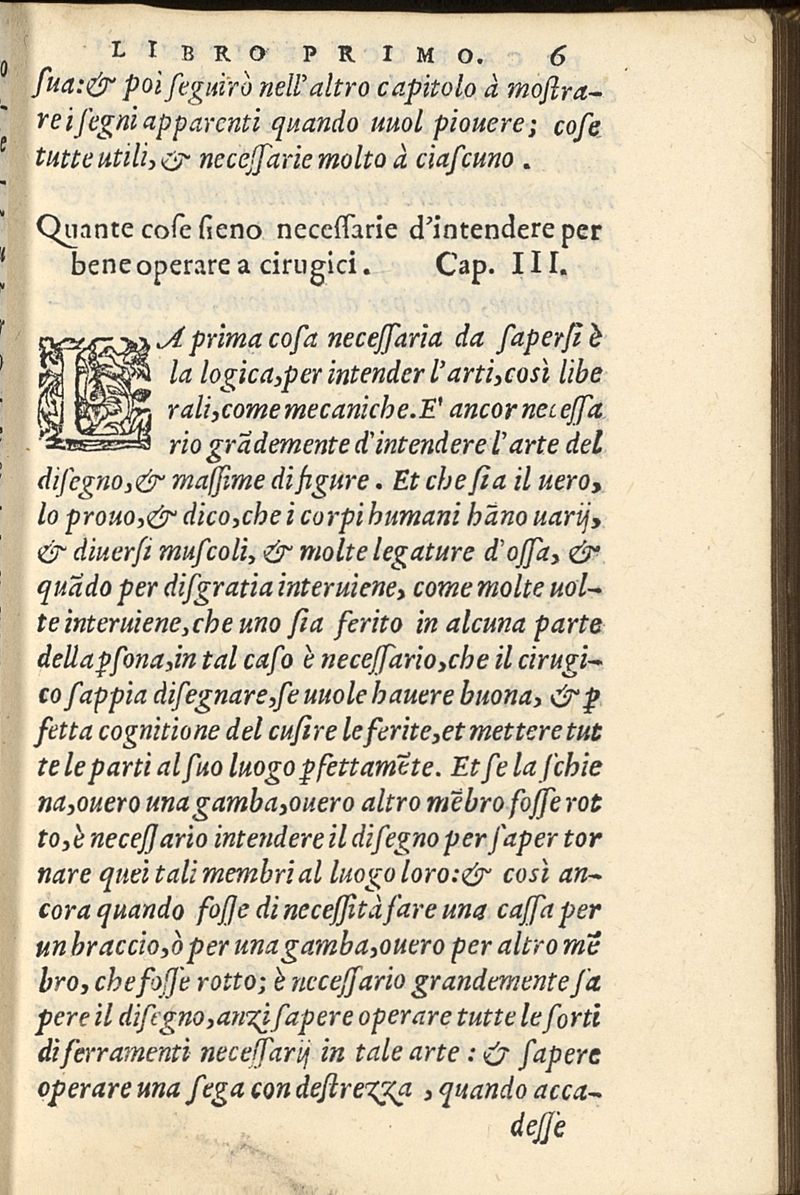 LIBRO PRIMO. 6
ſua:& poi ſeguirò nell'altro capitolo à moſtra-
re i ſegni apparenti quando uuol piouere; coſe
tutte utili, & neceſſarie molto à ciaſcuno .
Quante coſe ſieno neceſſarie d'intendere per
bene operare a cirugici. Cap. III.
LA prima coſa neceſſaria da ſaperſi è
la logica,per intender l'arti,così libe
rali,come mecaniche.E' ancor neceſſa
rio grãdemente d'intendere l'arte del
diſegno,& maſſime di figure . Et che ſia il uero,
lo prouo,& dico,che i corpi humani hãno uarij,
& diuerſi muſcoli, & molte legature d'oſſa, &
quãdo per diſgratia interuiene, come molte uol-
te interuiene,che uno ſia ferito in alcuna parte
della ꝑſona,in tal caſo è neceſſario,che il cirugi-
co ſappia diſegnare,ſe uuole hauere buona, & ꝑ
fetta cognitione del cuſire le ferite,et mettere tut
te le parti al ſuo luogo ꝑfettamẽte. Et ſe la ſchie
na,ouero una gamba,ouero altro mẽbro foſſe rot
to,è neceſſario intendere il diſegno per ſaper tor
nare quei tali membri al luogo loro:& così an-
cora quando foſſe di neceſſità fare una caſſa per
un braccio,ò per una gamba,ouero per altro mẽ
bro, che foſſe rotto; è neceſſario grandemente ſa
pere il diſegno,anzi ſapere operare tutte le ſorti
di ferramenti neceſſarij in tale arte : & ſapere
operare una ſega con deſtrezza , quando acca-
deſſe